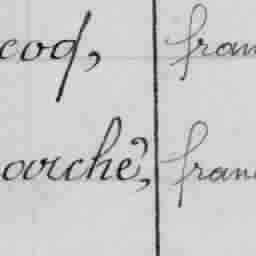 coq, fran
arché, fran